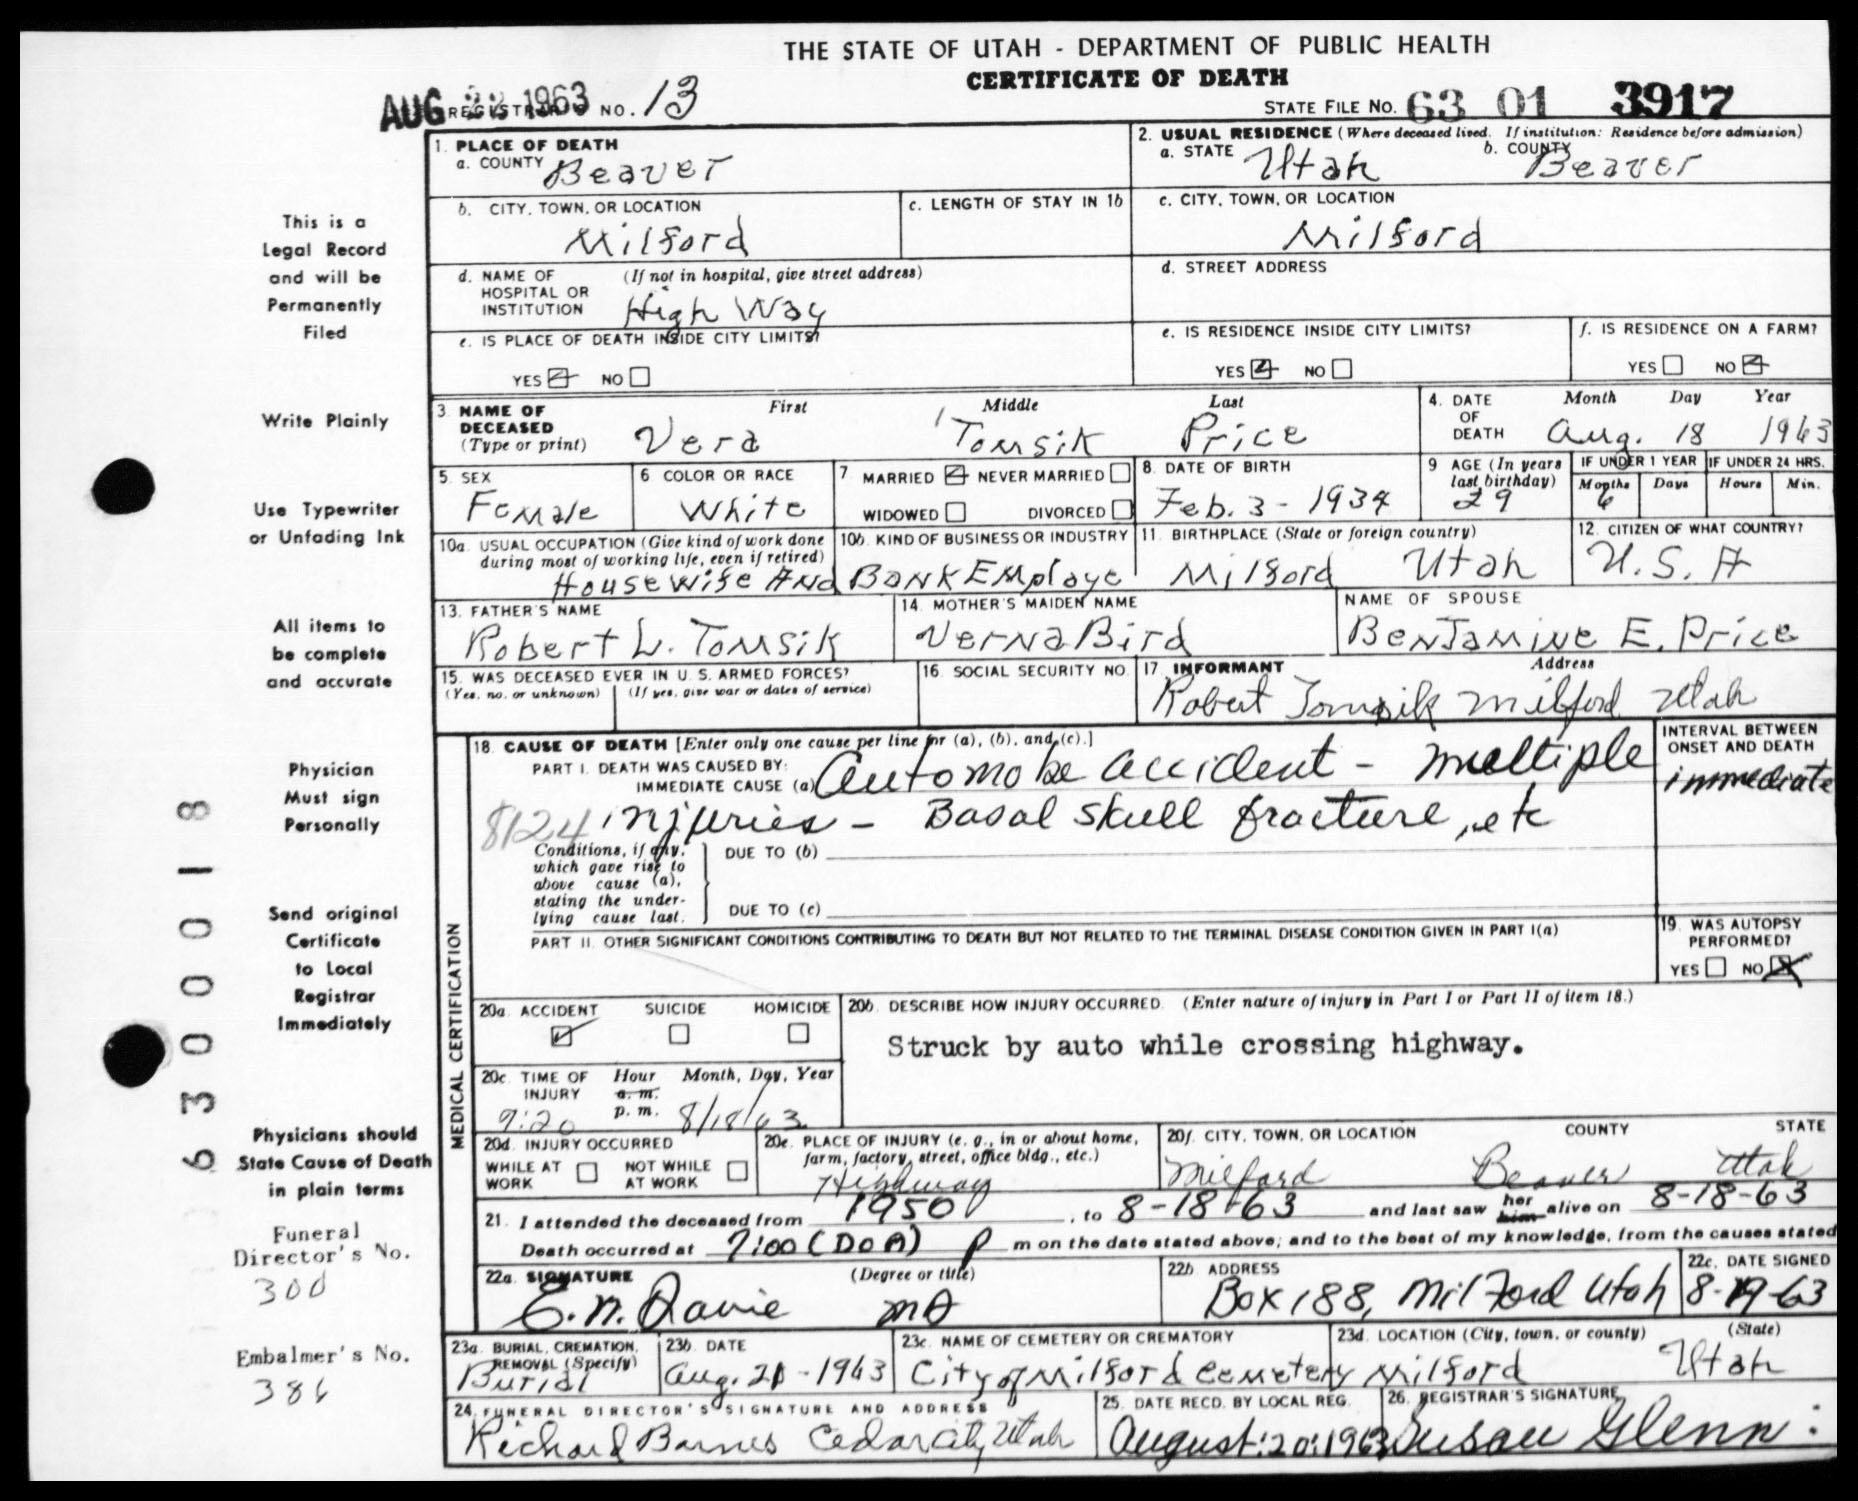 THE STATE OF UTAH - DEPARTMENT OF PUBLIC HEALTH
CERTIFICATE OF DEATH
AUG 1963 REGISTRAR'S NO. 13
STATE FILE NO. 63 01 3917
This is a
Legal Record
and will be
Permanently
Filed
Write Plainly
Use Typewriter
or Unfading Ink
All items to
be complete
and accurate
Physician
Must sign
Personally
Send original
Certificate
to Local
Registrar
Immediately
Physicians should
State Cause of Death
in plain terms
Funeral
Director's No.
300
Embalmer's No.
386
6 3 0 0 0 1 8
1. PLACE OF DEATH
a. COUNTY Beaver
2. USUAL RESIDENCE (Where deceased lived. If institution: Residence before admission)
a. STATE Utah b. COUNTY Beaver
b. CITY, TOWN, OR LOCATION
Milford
c. LENGTH OF STAY IN 1b
c. CITY, TOWN, OR LOCATION
Milford
d. NAME OF (If not in hospital, give street address)
HOSPITAL OR
INSTITUTION High Way
d. STREET ADDRESS
e. IS PLACE OF DEATH INSIDE CITY LIMITS?
YES NO
e. IS RESIDENCE INSIDE CITY LIMITS?
YES NO
f. IS RESIDENCE ON A FARM?
YES NO
3. NAME OF DECEASED (Type or print)
First Middle Last
Vera Tomsik Price
4. DATE OF DEATH Month Day Year
Aug. 18 1963
5. SEX
Female
6 COLOR OR RACE
White
7 MARRIED NEVER MARRIED
WIDOWED DIVORCED
8. DATE OF BIRTH
Feb. 3 - 1934
9 AGE (In years last birthday)
29
IF UNDER 1 YEAR IF UNDER 24 HRS.
Months Days Hours Min.
6
10a. USUAL OCCUPATION (Give kind of work done
during most of working life, even if retired)
10b. KIND OF BUSINESS OR INDUSTRY
House Wife And Bank Employe
11. BIRTHPLACE (State or foreign country)
Milford Utah
12. CITIZEN OF WHAT COUNTRY?
U.S.A
13. FATHER'S NAME
Robert L. Tomsik
14. MOTHER'S MAIDEN NAME
Verna Bird
NAME OF SPOUSE
Benjamine E. Price
15. WAS DECEASED EVER IN U. S. ARMED FORCES?
(Yes, no, or unknown) (If yes, give war or dates of service)
16. SOCIAL SECURITY NO.
17. INFORMANT Address
Robert Tomsik Milford Utah
MEDICAL CERTIFICATION
18. CAUSE OF DEATH [Enter only one cause per line for (a), (b), and (c).]
PART I. DEATH WAS CAUSED BY:
IMMEDIATE CAUSE (a) Automobe accident - multiple
8124 injuries - Basal skull fracture, etc
INTERVAL BETWEEN
ONSET AND DEATH
immediate
Conditions, if any,
which gave rise to
above cause (a),
stating the under-
lying cause last.
DUE TO (b)
DUE TO (c)
PART II. OTHER SIGNIFICANT CONDITIONS CONTRIBUTING TO DEATH BUT NOT RELATED TO THE TERMINAL DISEASE CONDITION GIVEN IN PART I(a)
19. WAS AUTOPSY
PERFORMED?
YES NO
20a. ACCIDENT SUICIDE HOMICIDE
20b. DESCRIBE HOW INJURY OCCURRED. (Enter nature of injury in Part I or Part II of item 18.)
Struck by auto while crossing highway.
20c. TIME OF INJURY Hour Month, Day, Year
a. m.
p. m.
8/18/63
20d. INJURY OCCURRED
WHILE AT WORK NOT WHILE AT WORK
20e. PLACE OF INJURY (e. g., in or about home,
farm, factory, street, office bldg., etc.)
Highway
20f. CITY, TOWN, OR LOCATION COUNTY STATE
Milford Beaver Utah
21. I attended the deceased from 1950, to 8-18-63 and last saw her him alive on 8-18-63
Death occurred at (DOA) P m on the date stated above; and to the best of my knowledge, from the causes stated
22a. SIGNATURE (Degree or title)
MD
22b. ADDRESS
Box 188, Milford Utah
22c. DATE SIGNED
8-19-63
23a. BURIAL, CREMATION,
REMOVAL (Specify)
Burial
23b. DATE
Aug. 21 - 1963
23c. NAME OF CEMETERY OR CREMATORY
City of Milford Cemetery
23d. LOCATION (City, town, or county) (State)
Milford Utah
24. FUNERAL DIRECTOR'S SIGNATURE AND ADDRESS
Richard Barnes Cedar City, Utah
25. DATE RECD. BY LOCAL REG.
August: 20: 1963
26. REGISTRAR'S SIGNATURE
Susan Glenn